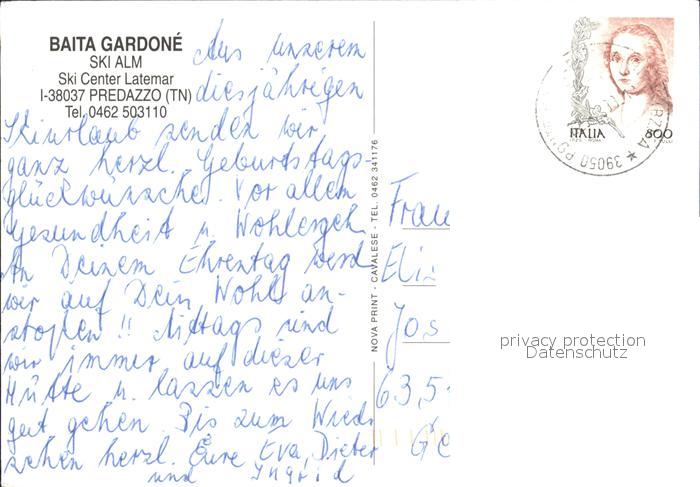 BAITA GARDONÉ
SKI ALM
Ski Center Latemar
I-38037 PREDAZZO (TN)
Tel. 0462 503110
Aus unserem
diesjährigen
Skiurlaub senden wir
ganz herzl. Geburtstags-
glückwünsche. Vor allem
Gesundheit u. Wohlergeh.
An Deinem Ehrentag werd
wir auf Dein Wohl an-
stoßen !! Mittags sind
wir immer auf dieser
Hütte u. lassen es uns
gut gehen. Bis zum Wied.
sehen herzl. Eure Eva, Dieter
und Ingrid
NOVA PRINT - CAVALESE - TEL. 0462 341176
Frau
Eli
Jos
63,5
Ge
ITALIA 800
39050
privacy protection
Datenschutz